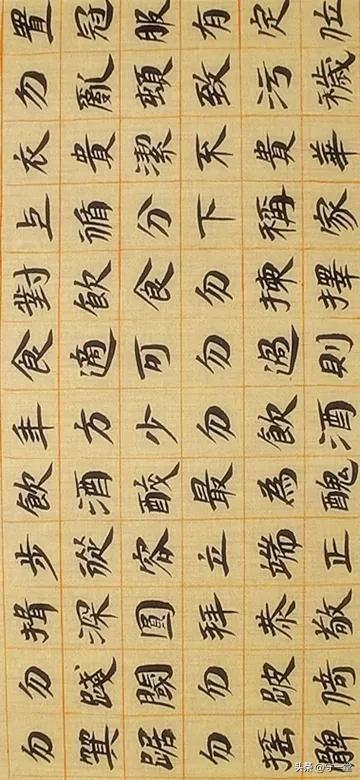 置冠服有定位
勿亂頓致污穢
衣貴潔不貴華
上循分下稱家
對飲食勿揀擇
食適可勿過則
年方少勿飲酒
飲酒醉最為醜
步從容立端正
揖深圓拜恭敬
勿踐閾勿跛倚
勿箕踞勿搖髀
头条